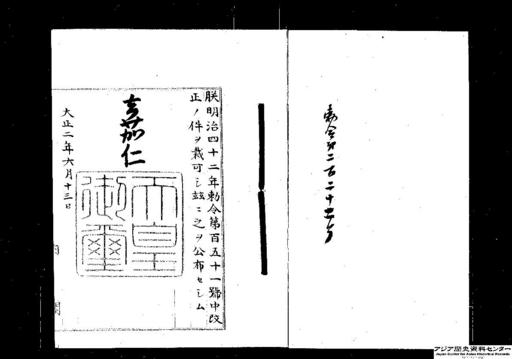 勅令第二百二十四号
朕明治四十二年勅令第百五十一號中改
正ノ件ヲ裁可シ玆ニ之ヲ公布セシム
嘉仁
天皇
御璽
大正二年六月十三日
アジア歴史資料センター
Japan Center for Asian Historical Records